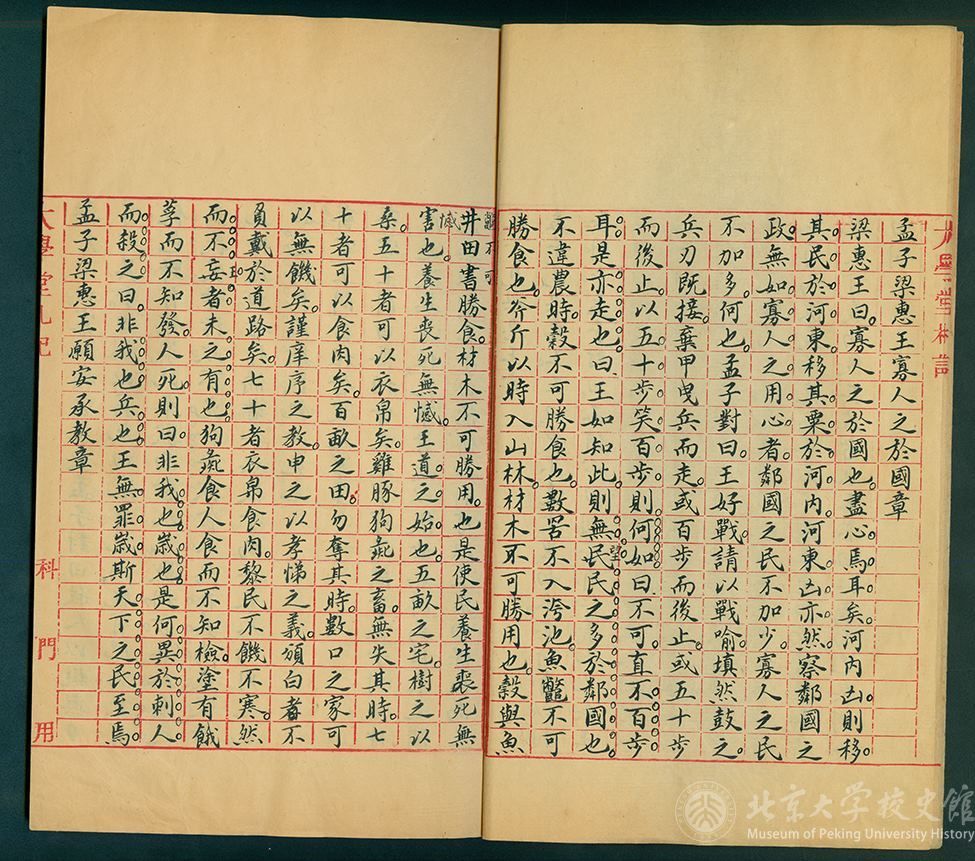 孟子梁惠王寡人之於國章
梁惠王曰寡人之於國也盡心焉耳矣河内凶則移
其民於河東移其粟於河内河東凶亦然察鄰國之
政無如寡人之用心者鄰國之民不加少寡人之民
不加多何也孟子對曰王好戰請以戰喻填然鼓之
兵刃既接棄甲曳兵而走或百步而後止或五十步
而後止以五十步笑百步則何如曰不可直不百步
耳是亦走也曰王如知此則無望民之多於鄰國也
不違農時穀不可勝食也數罟不入洿池魚鼈不可
勝食也斧斤以時入山林材木不可勝用也穀與魚
鼈不可
井田書勝食材木不可勝用也是使民養生喪死無
憾
害也養生喪死無憾王道之始也五畝之宅樹之以
桑五十者可以衣帛矣雞豚狗彘之畜無失其時七
十者可以食肉矣百畝之田勿奪其時數口之家可
以無饑矣謹庠序之教申之以孝悌之義頒白者不
負戴於道路矣七十者衣帛食肉黎民不饑不寒然
王
而不妄者未之有也狗彘食人食而不知檢塗有餓
莩而不知發人死則曰非我也歲也是何異於刺人
而殺之曰非我也兵也王無罪歲斯天下之民至焉
孟子梁惠王願安承教章
科門用
北京大学校史館
Museum of Peking University History